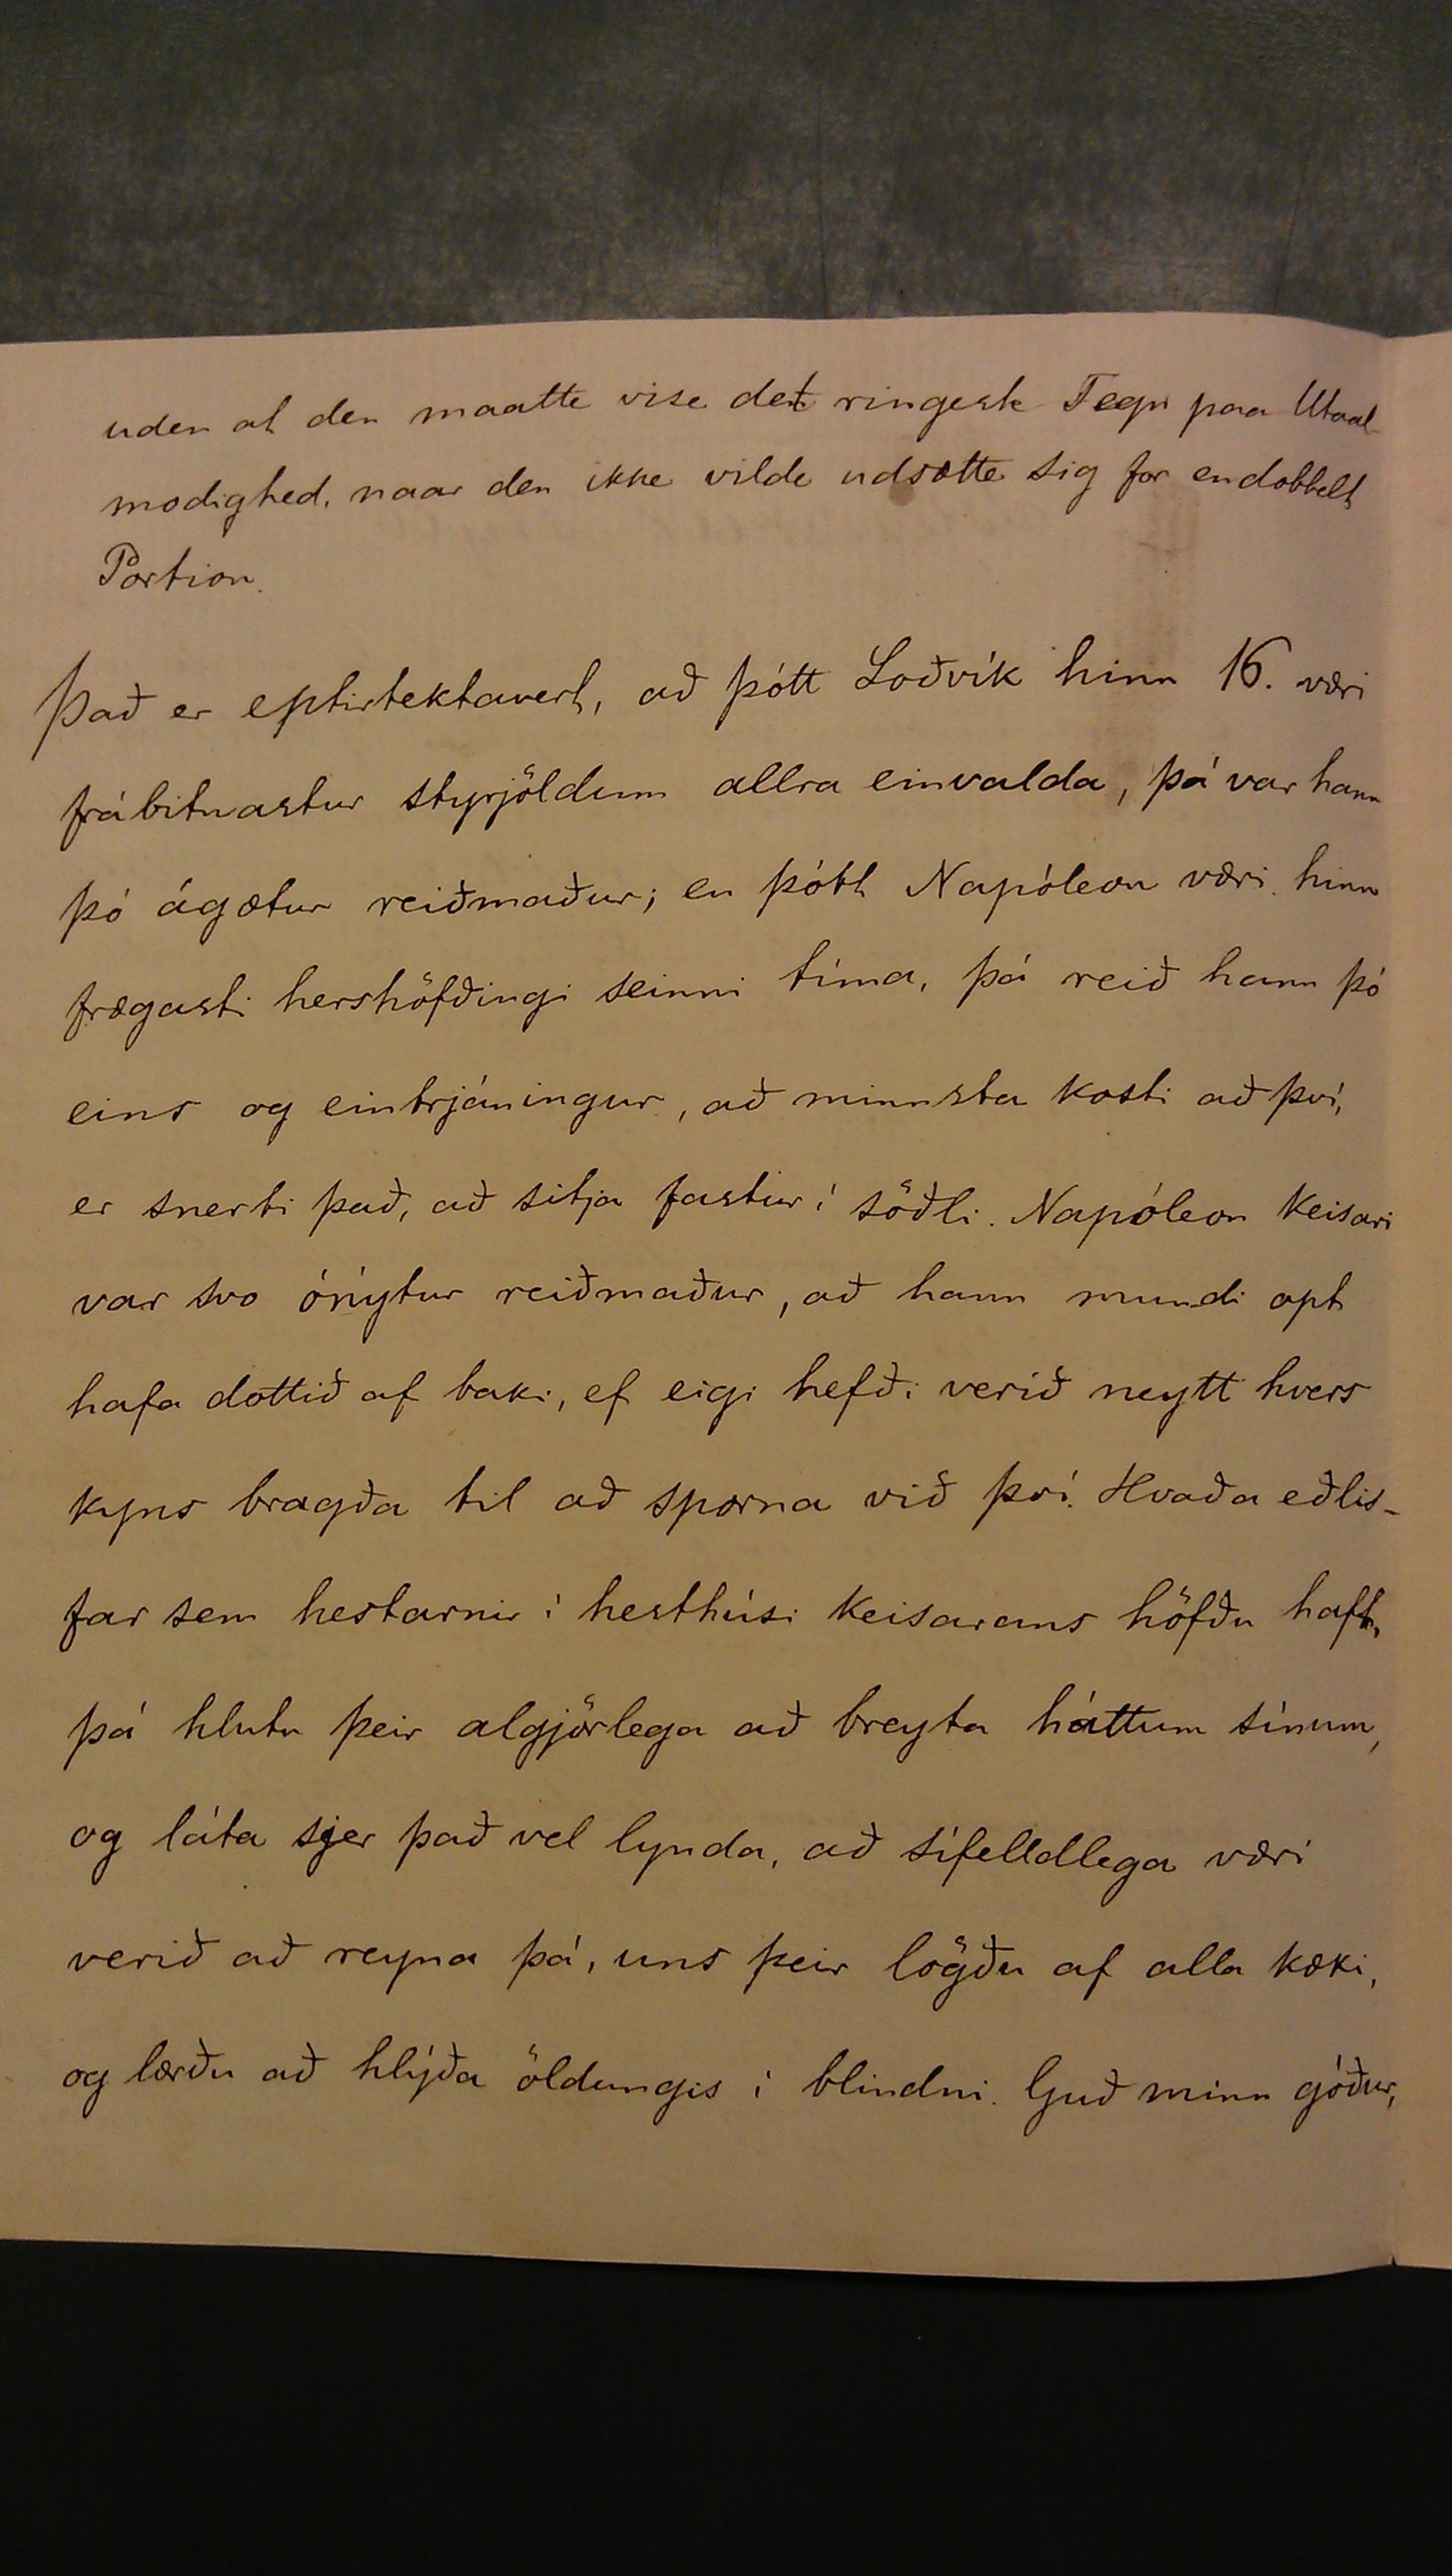 uden at den maatte vise det ringeste Tegn paa Utaal-
modighed, naar den ikke vilde udsætte sig for en dobbelt
Portion.
Það er eptirtektavert, að þótt Loðvík hinn 16. væri
frábitnastur styrjöldum allra einvalda, þá var hann
þó ágætur reiðmaður; en þótt Napóleon væri hinn
frægasti hershöfðingi seinni tíma, þá reið hann þó
eins og eintrjáningur, að minnsta kosti að því,
er snerti það, að sitja fastur í söðli. Napóleon keisari
var svo ónýtur reiðmaður, að hann mundi opt
hafa dottið af baki, ef eigi hefði verið neytt hvers
kyns bragða til að sporna við því. Hvaða eðlis-
far sem hestarnir í hesthúsi keisarans höfðu haft,
þá hlutu þeir algjörlega að breyta háttum sínum,
og láta sjer það vel lynda, að sífelldlega væri
verið að reyna þá, uns þeir lögðu af alla kæki,
og lærðu að hlýða öldungis í blindni. Guð minn góður,